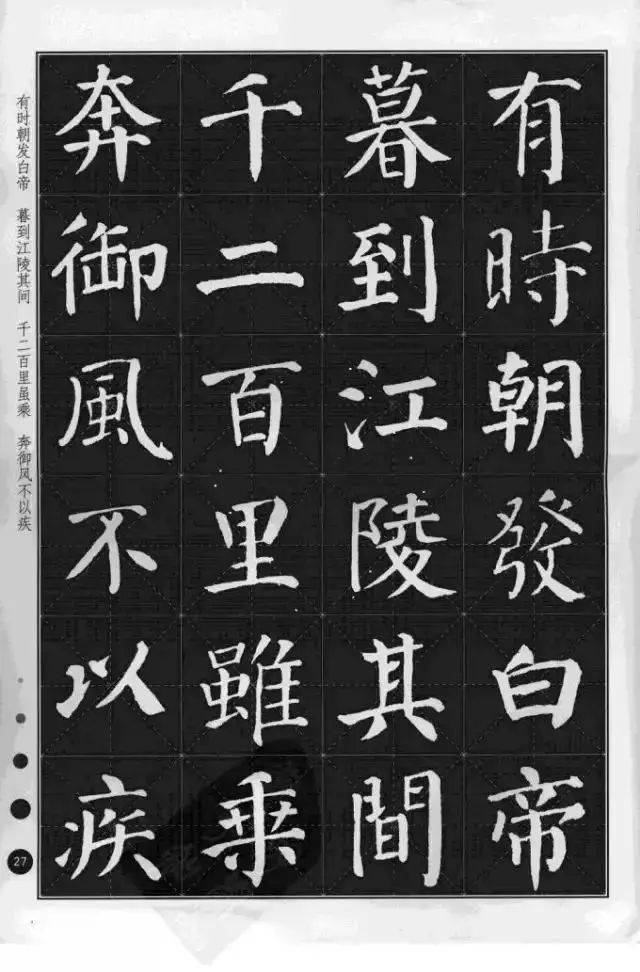 有時朝發白帝
暮到江陵其間
千二百里雖乗
奔御風不以疾
有时朝发白帝 暮到江陵其间 千二百里虽乘 奔御风不以疾
27